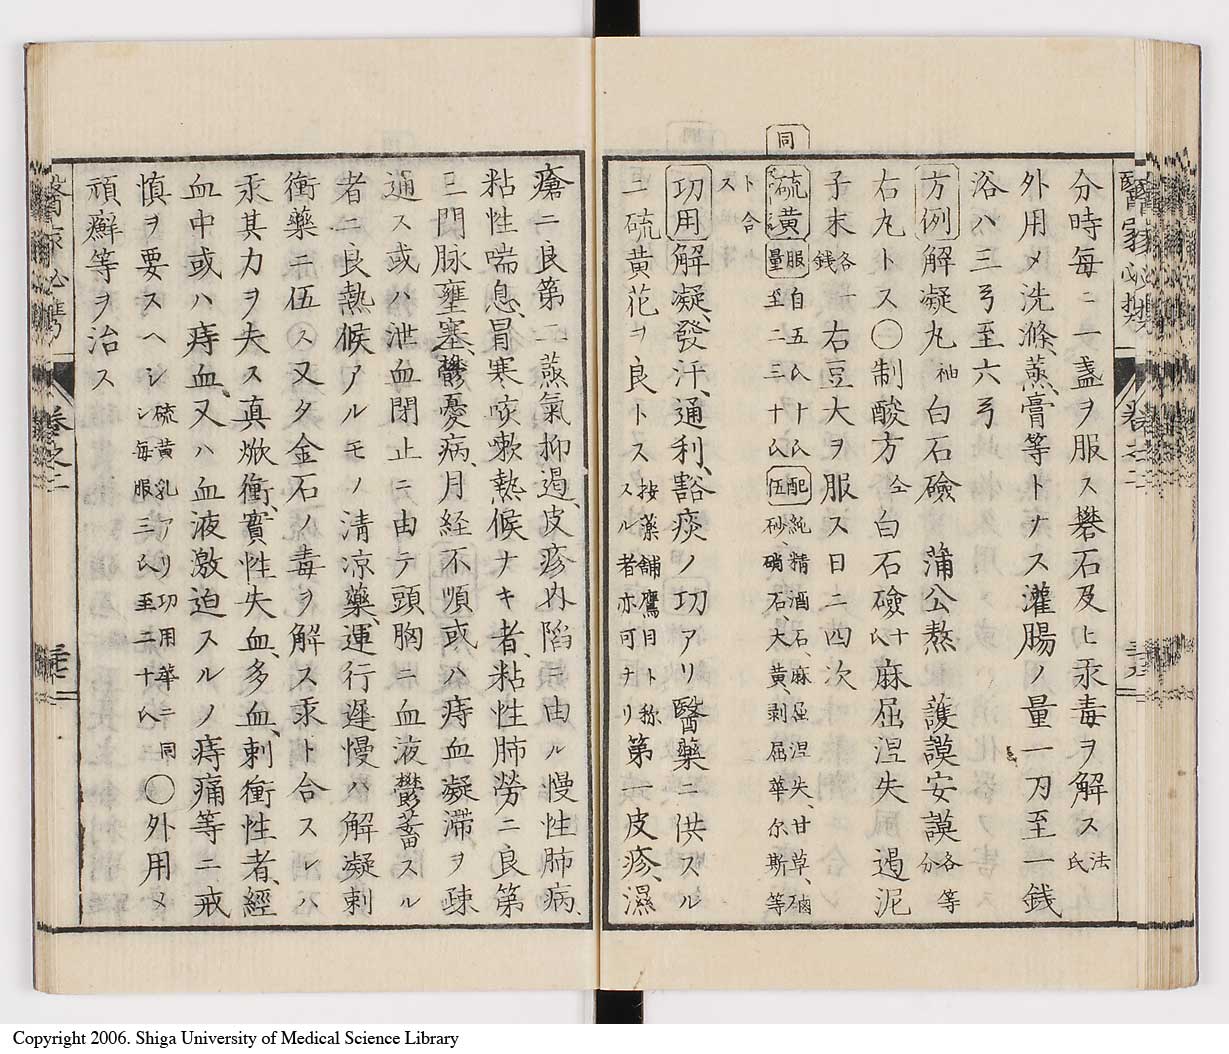 分時毎ニ一盞ヲ服ス礬石及ヒ汞毒ヲ解ス法氏
外用メ洗滌、蒸膏等トナス灌腸ノ量一刀至一銭
浴ハ三弓至六弓
方例 解凝丸 袖 白石鹸 蒲公熬 護謨安謨 各等分
右丸トス〇制酸方 仝 白石鹸 十氏 麻屈涅失 遏泥
子末 各一銭 右豆大ヲ服ス日ニ四次
同
硫黄 服量 自五氏十氏至二三十氏 配伍 純精酒石麻屈涅失、甘草、磠砂硝石、大黄、剥屈華尓斯等
ト合ス
功用 解凝、發汗、通利、豁痰ノ功アリ醫藥ニ供スル
ニ硫黄花ヲ良トス 按藥舗鷹目ト称スル者亦可ナリ 第一皮疹、濕
瘡ニ良第二蒸氣抑遏、皮疹内陷ニ由ル慢性肺病、
粘性喘息、冒寒咳嗽、熱候ナキ者、粘性肺勞ニ良第
三門脉壅塞、鬱憂病、月経不順或ハ痔血凝滞ヲ疎
通ス或ハ泄血閉止ニ由テ頭胸ニ血液鬱蓄スル
者ニ良熱候アルモノ清涼藥、運行遲慢ハ解凝刺
衝藥ニ伍ス〇又タ金石ノ毒ヲ解ス汞ト合スレハ
汞其力ヲ失ス真焮衝、實性失血、多血、刺衝性者、經
血中或ハ痔血、又ハ血液激迫スルノ痔痛等ニ戒
慎ヲ要スヘシ 硫黄乳アリ功用華ニ同シ毎服三氏至二十氏 〇外用メ
頑癬等ヲ治ス
醫家必携
巻之二
Copyright 2006. Shiga University of Medical Science Library